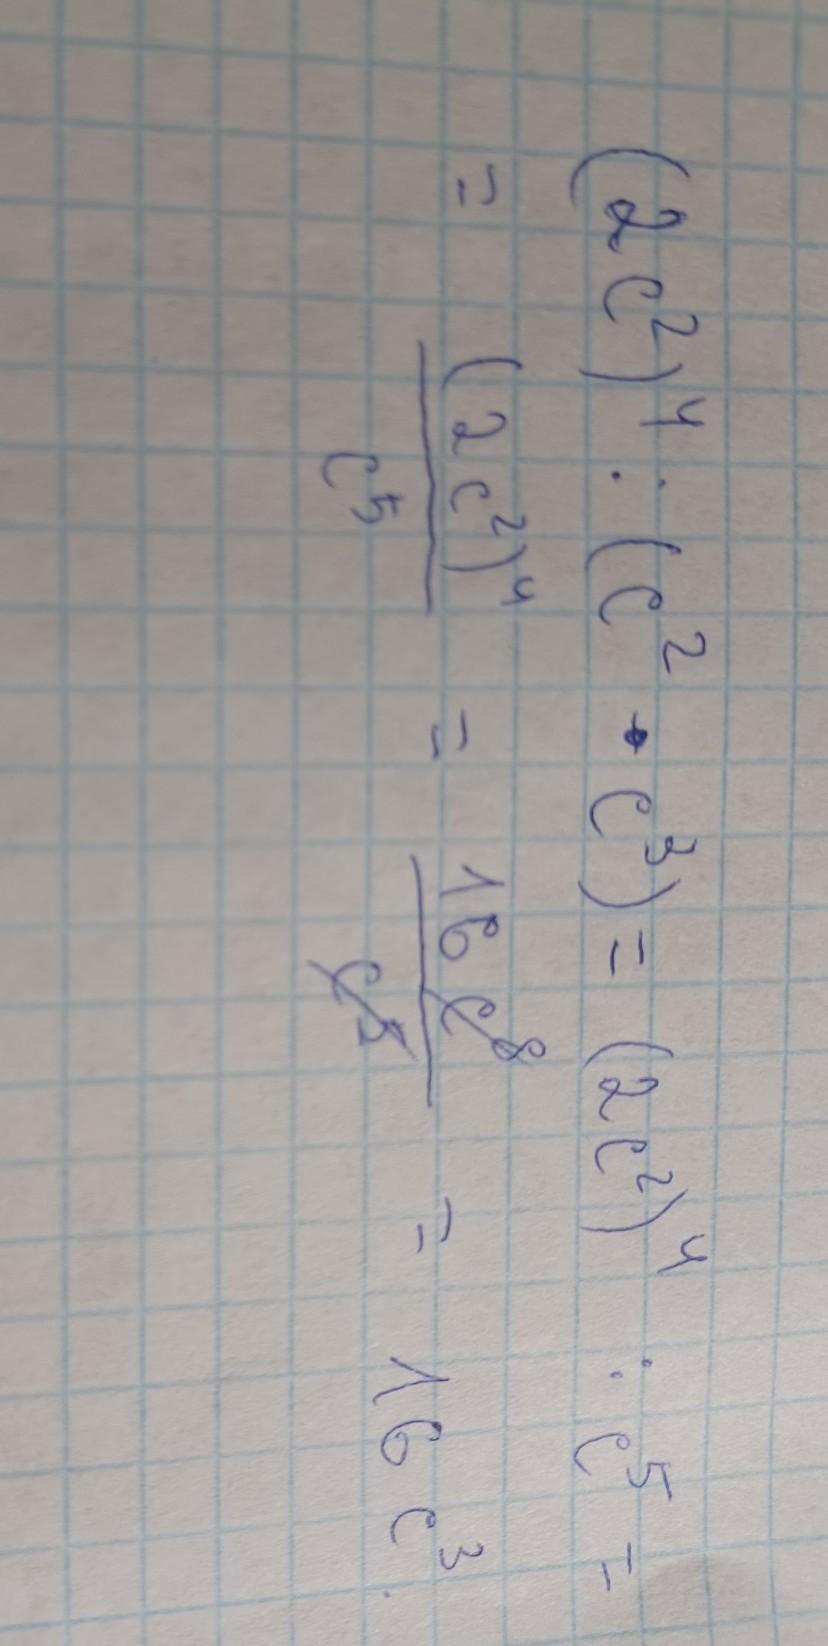 (2c²)⁴ : (c² · c³) = (2c²)⁴ : c⁵ =
= (2c²)⁴/c⁵ = 16c⁸/c⁵ = 16c³.